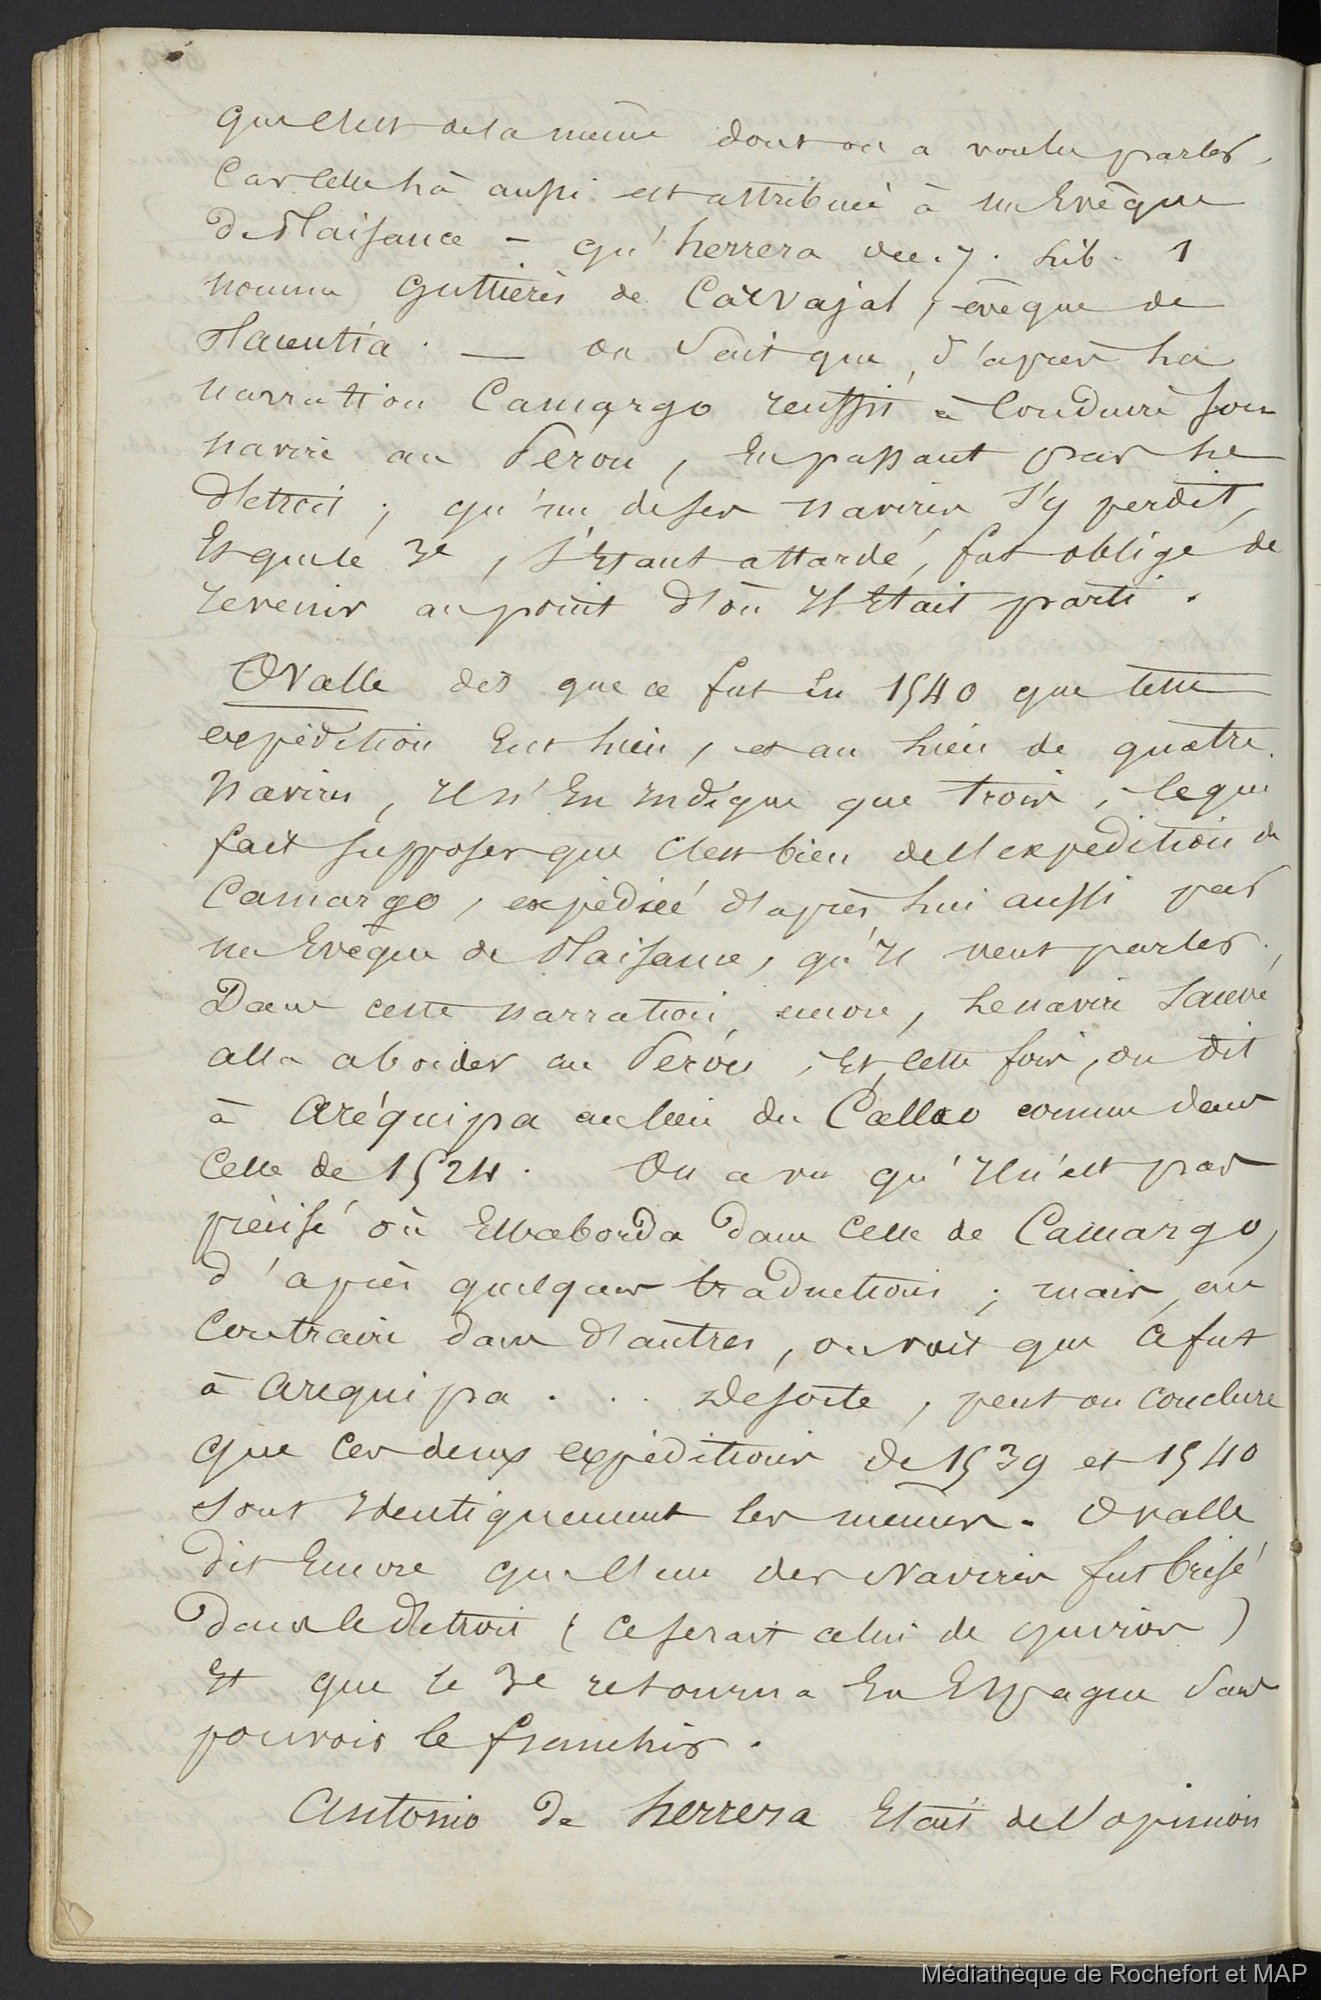 que c'est de la même dont on a voulu parler,
Car celle là aussi est attribuée à un Evêque
de Plaisance – qu'herrera dec. 7. Lib. 1
nomme Guttières de Carvajal, évêque de
Placentia. — on sait que, d'après la
narration Camargo reussit à Conduire son
navire au Pérou, En passant par le
détroit ; qu'un de ses navires s'y perdit,
Et que le 3e, s'Etant attardé, fut obligé de
revenir au point d'où Il Etait parti.
Ovalle dit que ce fut En 1540 que cette
expédition Eut lieu, et au lieu de quatre
Navires, Il n'En Indique que trois, ce qui
fait supposer que c'est bien de l'expédition de
Camargo, expédiée d'après lui aussi par
un Evêque de Plaisance, qu'Il veut parler.
Dans cette narration encore, le navire sauvé
alla aborder au Pérou, Et cette fois, on dit
à Aréquipa au lieu du Callao comme dans
Celle de 1524. On a vu qu'Il n'est pas
précisé où Elle aborda dans Celle de Camargo,
d'après quelques traductions ; mais, au
Contraire dans d'autres, on voit que Ce fut
à Arequipa . . . De sorte, peut on Conclure
que Ces deux expéditions de 1539 et 1540
sont Identiquement les mêmes. Ovalle
dit Encore que l'un des Navires fut brisé
dans le détroit ( Ce serait celui de quiros )
Et que le 3e retourna En Espagne sans
pouvoir le franchir.
Antonio de herrera Etait de l'opinion
Médiathèque de Rochefort et MAP